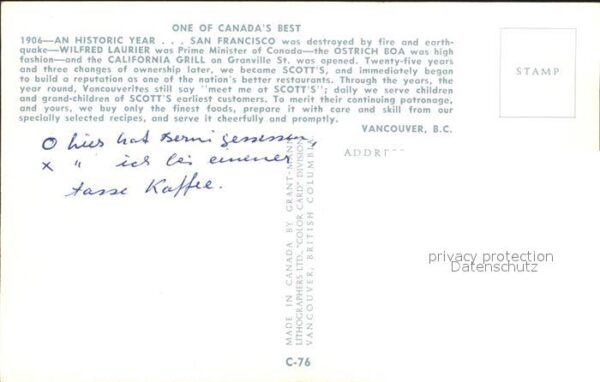 ONE OF CANADA'S BEST
1906—AN HISTORIC YEAR . . . SAN FRANCISCO was destroyed by fire and earth-
quake—WILFRED LAURIER was Prime Minister of Canada—the OSTRICH BOA was high
fashion—and the CALIFORNIA GRILL on Granville St. was opened. Twenty-five years
and three changes of ownership later, we became SCOTT'S, and immediately began
to build a reputation as one of the nation's better restaurants. Through the years, the
year round, Vancouverites still say "meet me at SCOTT'S"; daily we serve children
and grand-children of SCOTT'S earliest customers. To merit their continuing patronage,
and yours, we buy only the finest foods, prepare it with care and skill from our
specially selected recipes, and serve it cheerfully and promptly.
VANCOUVER, B.C.
STAMP
O hier hat Berni gesessen,
x " ich bei meiner
tasse Kaffee.
ADDRE
MADE IN CANADA BY GRANT-MANN
LITHOGRAPHERS LTD. "COLOR CARD" DIVISION
VANCOUVER, BRITISH COLUMBIA
privacy protection
Datenschutz
C-76